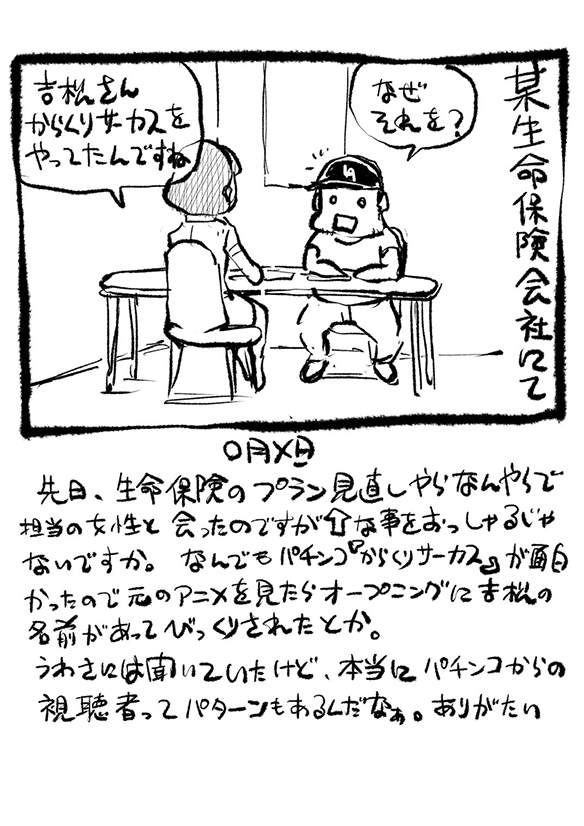 某生命保険会社にて
なぜ
それを？
吉松さん
からくりサーカスを
やってたんですね
〇月×日
先日、生命保険のプラン見直しやらなんやらで
担当の女性と会ったのですが⇧な事をおっしゃるじゃ
ないですか。なんでもパチンコ『からくりサーカス』が面白
かったので元のアニメを見たらオープニングに吉松の
名前があってびっくりされたとか。
うわさには聞いていたけど、本当にパチンコからの
視聴者ってパターンもあるんだなぁ。ありがたい